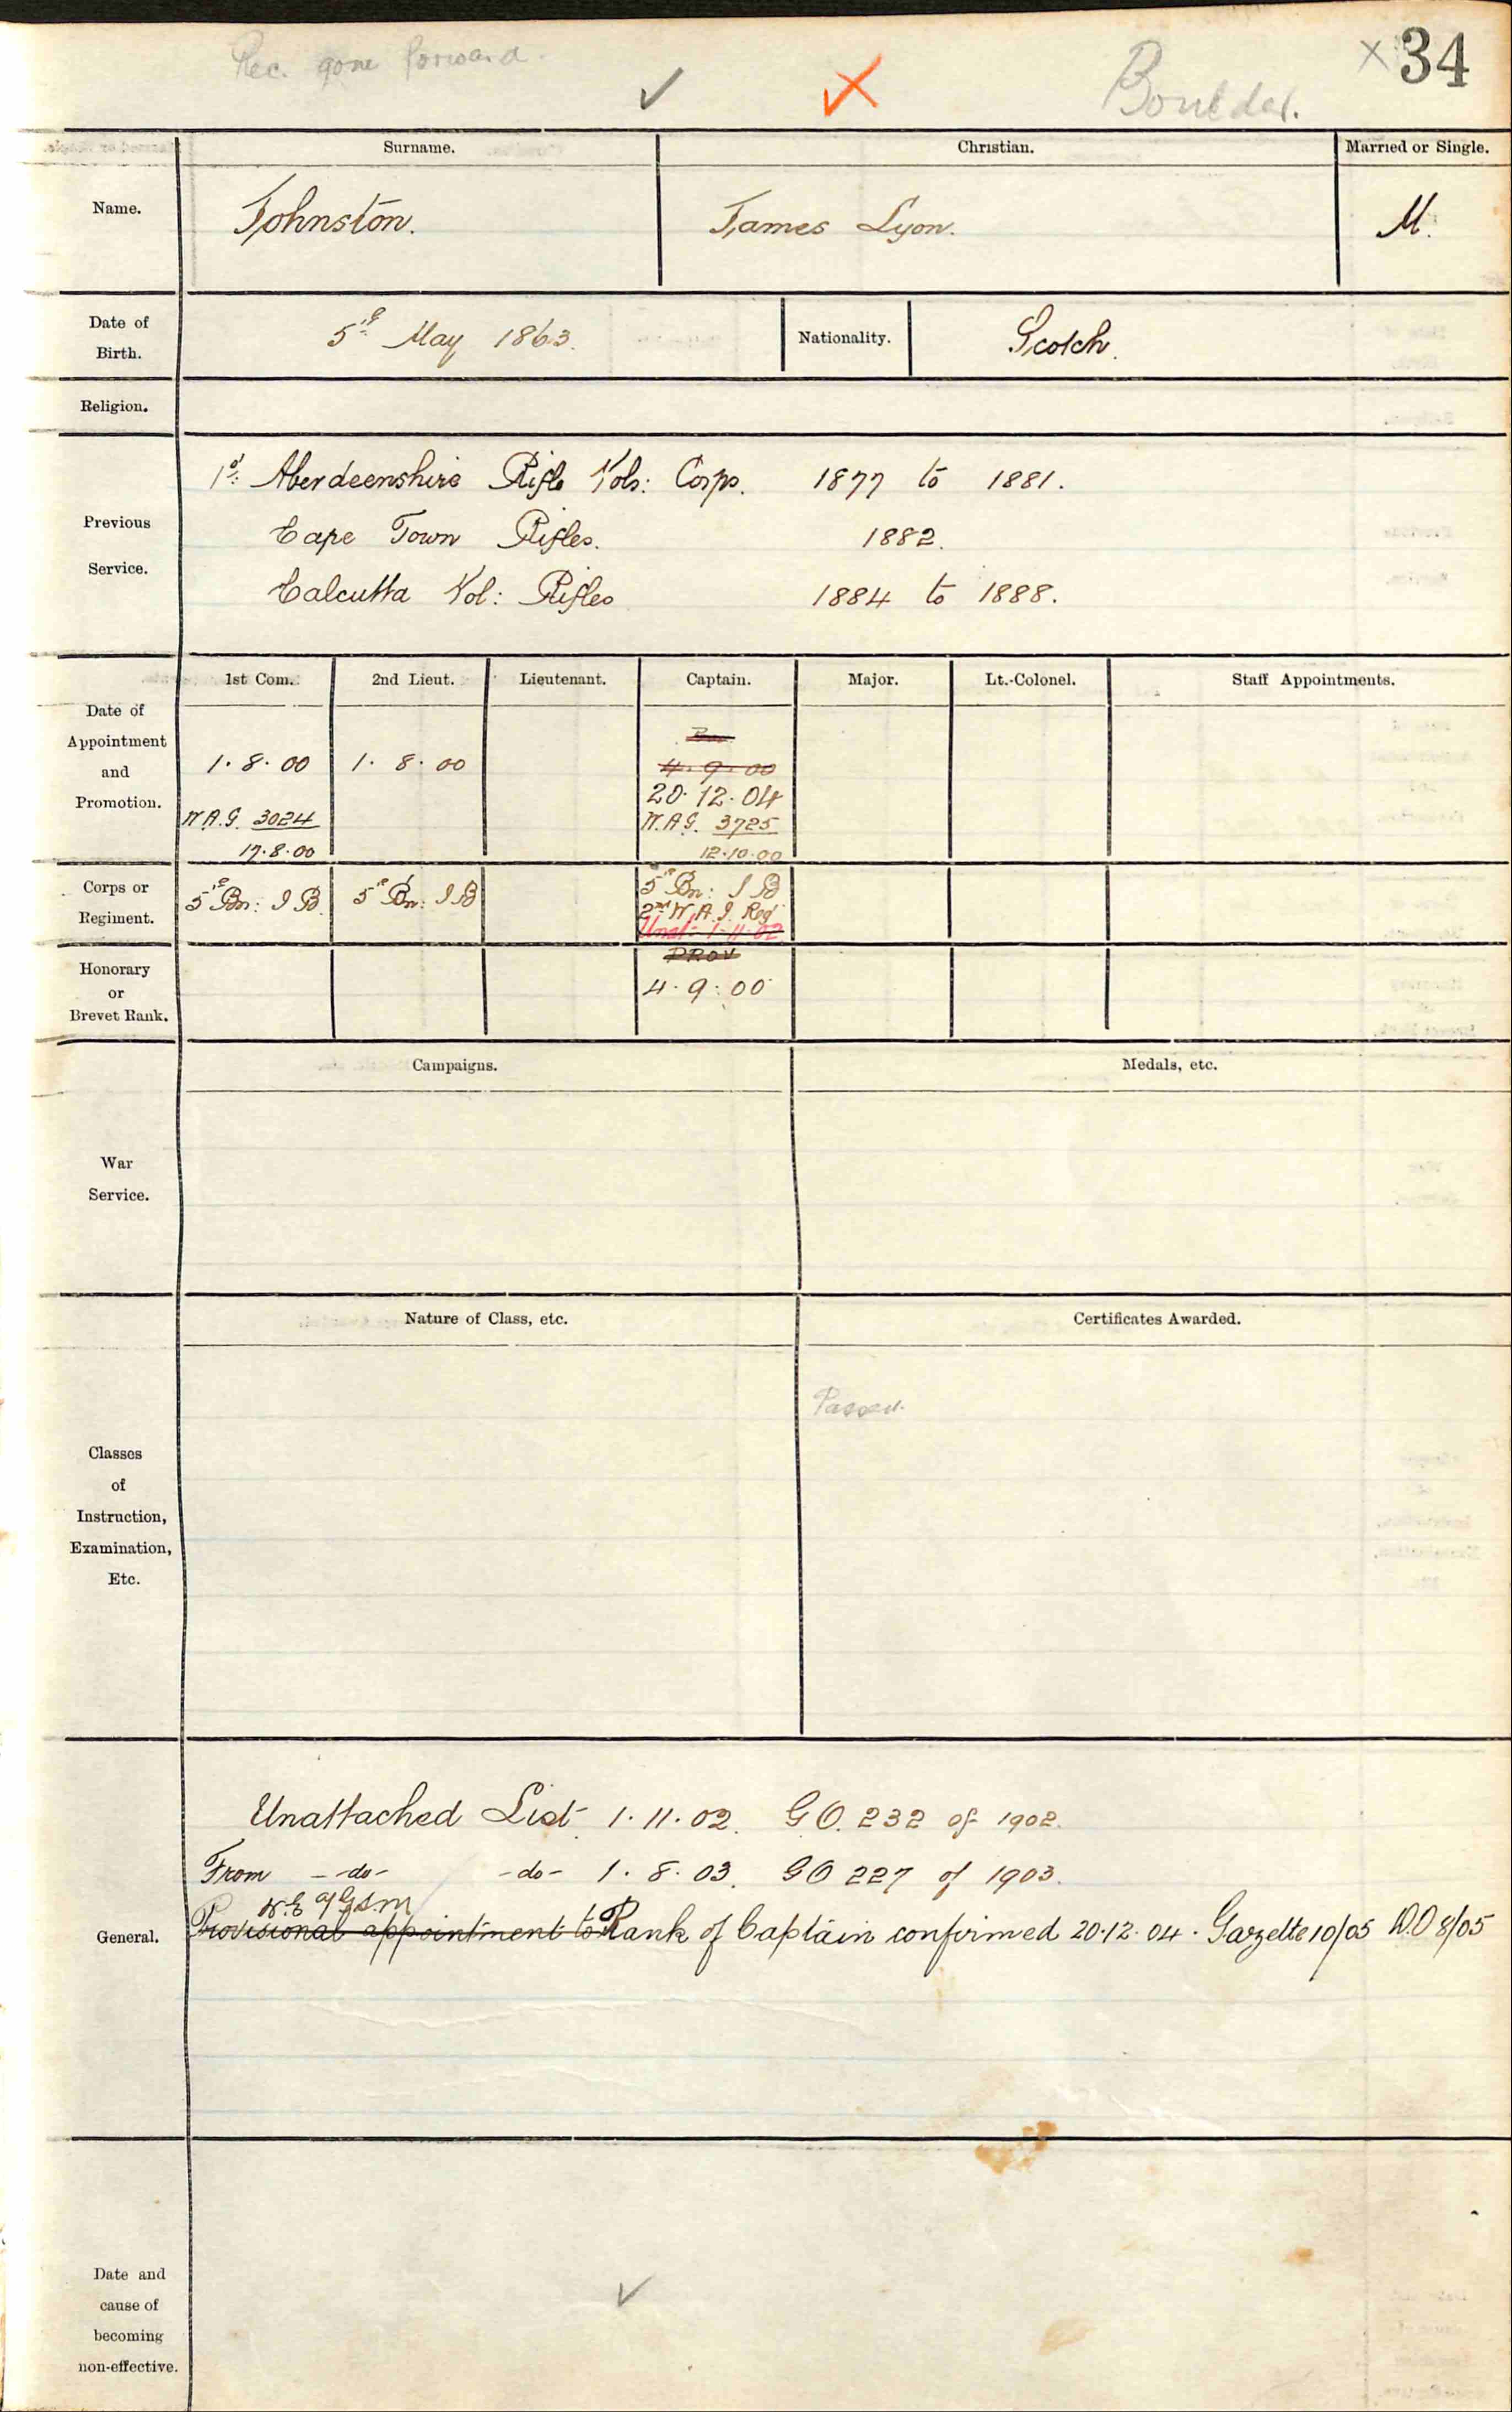 Rec. gone forward.
Boulder.
× 34
Surname. Christian. Married or Single.
Name. Johnston. James Lyon. M.
Date of Birth. 5th May 1863. Nationality. Scotch.
Religion.
Previous Service.
1st Aberdeenshire Rifle Vols: Corps. 1877 to 1881.
Cape Town Rifles. 1882.
Calcutta Vol: Rifles 1884 to 1888.
1st Com. 2nd Lieut. Lieutenant. Captain. Major. Lt.-Colonel. Staff Appointments.
Date of Appointment and Promotion.
1.8.00 1.8.00 4.9.00
20.12.04
W.A.G. 3024 W.A.G. 3725
17.8.00 12.10.00
Corps or Regiment. 5th Bn: I B 5th Bn: I B 5th Bn: I B
2nd W.A.I. Regt
Unat: 1.11.02
Honorary or Brevet Rank. PROV
4.9.00
Campaigns. Medals, etc.
War Service.
Nature of Class, etc. Certificates Awarded.
Passed.
Classes of Instruction, Examination, Etc.
General.
Unattached List 1.11.02. G.O. 232 of 1902.
From -do- -do- 1.8.03. GO 227 of 1903.
Provisional appointment to Rank of Captain confirmed 20.12.04. Gazette 10/05 D.O 8/05
Date and cause of becoming non-effective.